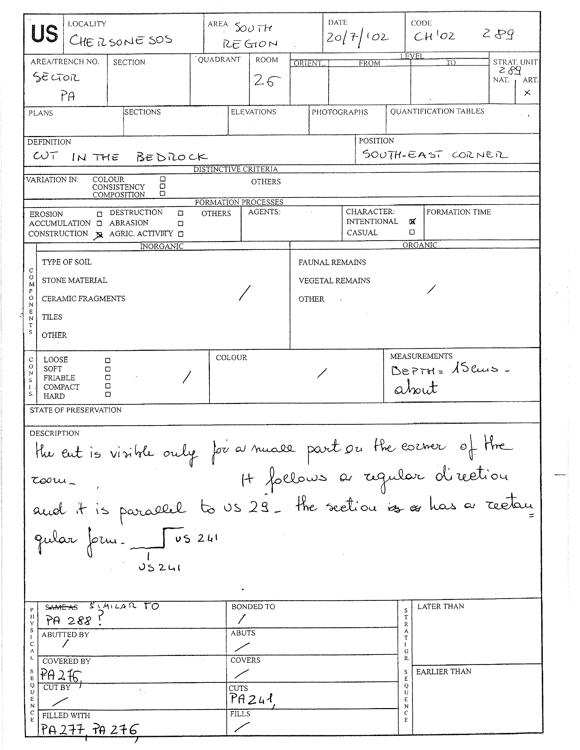 US
LOCALITY
CHERSONESOS
AREA SOUTH
REGION
DATE
20/7/'02
CODE
CH'02 289
AREA/TRENCH NO.
SECTOR
PA
SECTION
QUADRANT
ROOM
26
LEVEL
ORIENT. FROM TO
STRAT. UNIT
289
NAT. ART.
x
PLANS
SECTIONS
ELEVATIONS
PHOTOGRAPHS
QUANTIFICATION TABLES
DEFINITION
CUT IN THE BEDROCK
POSITION
SOUTH-EAST CORNER
DISTINCTIVE CRITERIA
VARIATION IN: COLOUR
CONSISTENCY
COMPOSITION
OTHERS
FORMATION PROCESSES
EROSION DESTRUCTION OTHERS
ACCUMULATION ABRASION
CONSTRUCTION AGRIC. ACTIVITY
AGENTS:
CHARACTER:
INTENTIONAL
CASUAL
FORMATION TIME
COMPONENTS
INORGANIC
TYPE OF SOIL
STONE MATERIAL
CERAMIC FRAGMENTS /
TILES
OTHER
ORGANIC
FAUNAL REMAINS
VEGETAL REMAINS /
OTHER
CONSIS.
LOOSE
SOFT
FRIABLE /
COMPACT
HARD
COLOUR
/
MEASUREMENTS
DEPTH= 15cms-
about
STATE OF PRESERVATION
DESCRIPTION
the cut is visible only for a small part on the corner of the
room- It follows a regular direction
and it is parallel to US 29- the section is has a rectan
gular form- US 241
US 241
PHYSICAL SEQUENCE
SAME AS SIMILAR TO
PA 288?
BONDED TO
/
ABUTTED BY
/
ABUTS
/
COVERED BY
PA276,
COVERS
/
CUT BY
/
CUTS
PA241,
FILLED WITH
PA277, PA276,
FILLS
/
STRATIGR. SEQUENCE
LATER THAN
EARLIER THAN